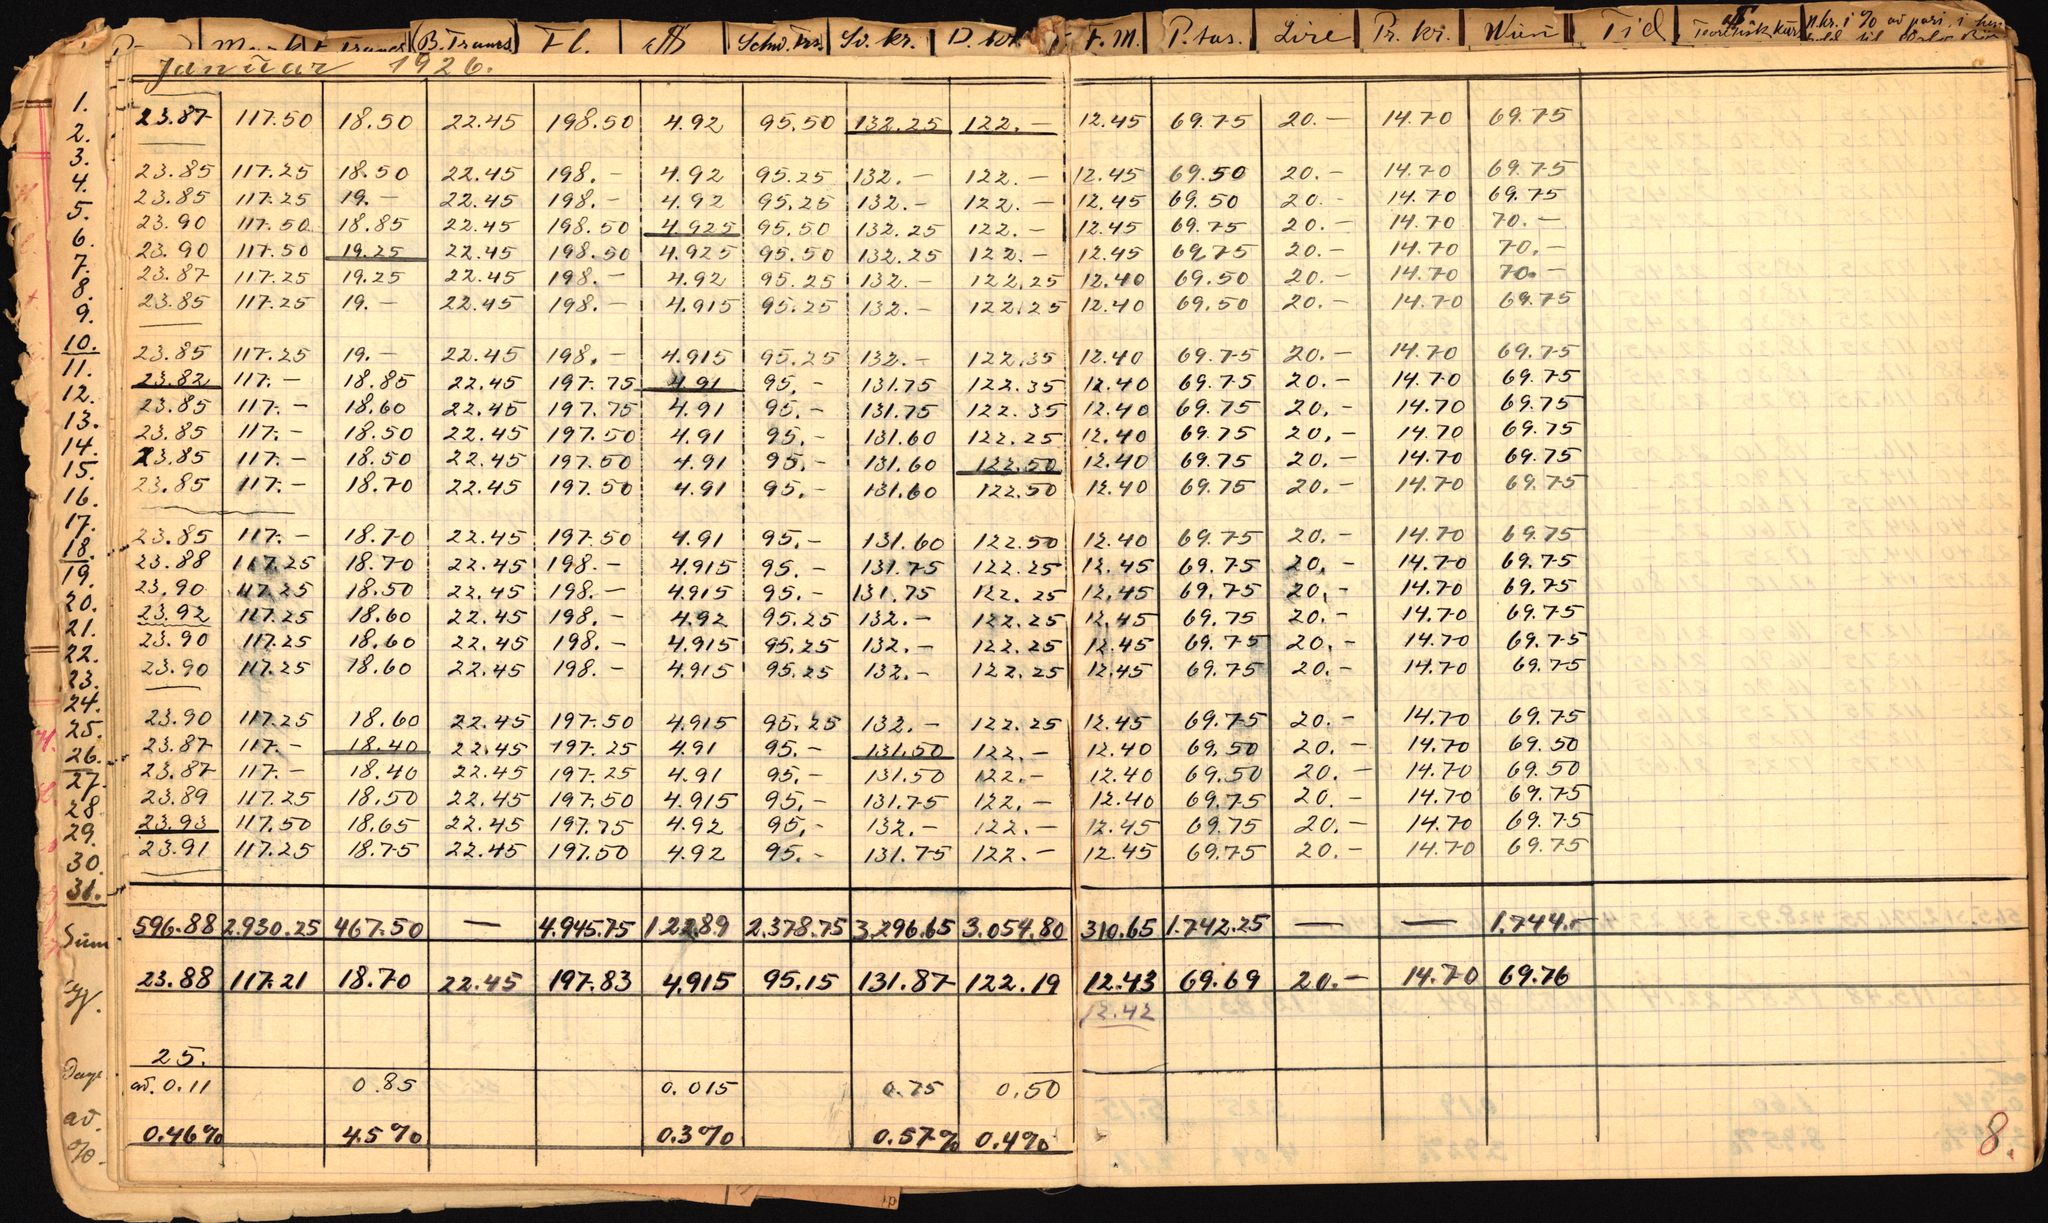 Fl. $ Schw. Frs. Sv. kr. D. kr. F. M. P.tas. Lire Pr. kr. Wien Tid
Januar 1926.
1.
2. 23.87 117.50 18.50 22.45 198.50 4.92 95.50 132.25 122.— 12.45 69.75 20.— 14.70 69.75
3.
4. 23.85 117.25 18.50 22.45 198.— 4.92 95.25 132.— 122.— 12.45 69.50 20.— 14.70 69.75
5. 23.85 117.25 19.— 22.45 198.— 4.92 95.25 132.— 122.— 12.45 69.50 20.— 14.70 69.75
6. 23.90 117.50 18.85 22.45 198.50 4.925 95.50 132.25 122.— 12.45 69.75 20.— 14.70 70.—
7. 23.90 117.50 19.25 22.45 198.50 4.925 95.50 132.25 122.— 12.45 69.75 20.— 14.70 70.—
8. 23.87 117.25 19.25 22.45 198.— 4.92 95.25 132.— 122.25 12.40 69.50 20.— 14.70 70.—
9. 23.85 117.25 19.— 22.45 198.— 4.915 95.25 132.— 122.25 12.40 69.50 20.— 14.70 69.75
10.
11. 23.85 117.25 19.— 22.45 198.— 4.915 95.25 132.— 122.35 12.40 69.75 20.— 14.70 69.75
12. 23.82 117.— 18.85 22.45 197.75 4.91 95.— 131.75 122.35 12.40 69.75 20.— 14.70 69.75
13. 23.85 117.— 18.60 22.45 197.75 4.91 95.— 131.75 122.35 12.40 69.75 20.— 14.70 69.75
14. 23.85 117.— 18.50 22.45 197.50 4.91 95.— 131.60 122.25 12.40 69.75 20.— 14.70 69.75
15. 23.85 117.— 18.50 22.45 197.50 4.91 95.— 131.60 122.50 12.40 69.75 20.— 14.70 69.75
16. 23.85 117.— 18.70 22.45 197.50 4.91 95.— 131.60 122.50 12.40 69.75 20.— 14.70 69.75
17.
18. 23.85 117.— 18.70 22.45 197.50 4.91 95.— 131.60 122.50 12.40 69.75 20.— 14.70 69.75
19. 23.88 117.25 18.70 22.45 198.— 4.915 95.— 131.75 122.25 12.45 69.75 20.— 14.70 69.75
20. 23.90 117.25 18.50 22.45 198.— 4.915 95.— 131.75 122.25 12.45 69.75 20.— 14.70 69.75
21. 23.92 117.25 18.60 22.45 198.— 4.92 95.25 132.— 122.25 12.45 69.75 20.— 14.70 69.75
22. 23.90 117.25 18.60 22.45 198.— 4.915 95.25 132.— 122.25 12.45 69.75 20.— 14.70 69.75
23. 23.90 117.25 18.60 22.45 198.— 4.915 95.25 132.— 122.25 12.45 69.75 20.— 14.70 69.75
24.
25. 23.90 117.25 18.60 22.45 197.50 4.915 95.25 132.— 122.25 12.45 69.75 20.— 14.70 69.75
26. 23.87 117.— 18.40 22.45 197.25 4.91 95.— 131.50 122.— 12.40 69.50 20.— 14.70 69.50
27. 23.87 117.— 18.40 22.45 197.25 4.91 95.— 131.50 122.— 12.40 69.50 20.— 14.70 69.50
28. 23.89 117.25 18.50 22.45 197.50 4.915 95.— 131.75 122.— 12.40 69.75 20.— 14.70 69.75
29. 23.93 117.50 18.65 22.45 197.75 4.92 95.— 132.— 122.— 12.45 69.75 20.— 14.70 69.75
30. 23.91 117.25 18.75 22.45 197.50 4.92 95.— 131.75 122.— 12.45 69.75 20.— 14.70 69.75
31.
Sum 596.88 2.930.25 467.50 — 4.945.75 122.89 2.378.75 3.296.65 3.054.80 310.65 1.742.25 — — 1.744.—
23.88 117.21 18.70 22.45 197.83 4.915 95.15 131.87 122.19 12.43 69.69 20.— 14.70 69.76
12.42
Dage 25.
av. av. 0.11 0.85 0.015 0.75 0.50
%. 0.46% 4.5% 0.3% 0.57% 0.4%
8.